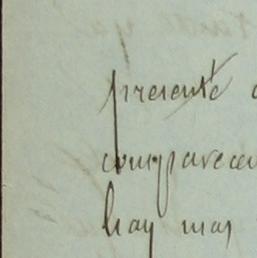 presente
comparecen
hay mas